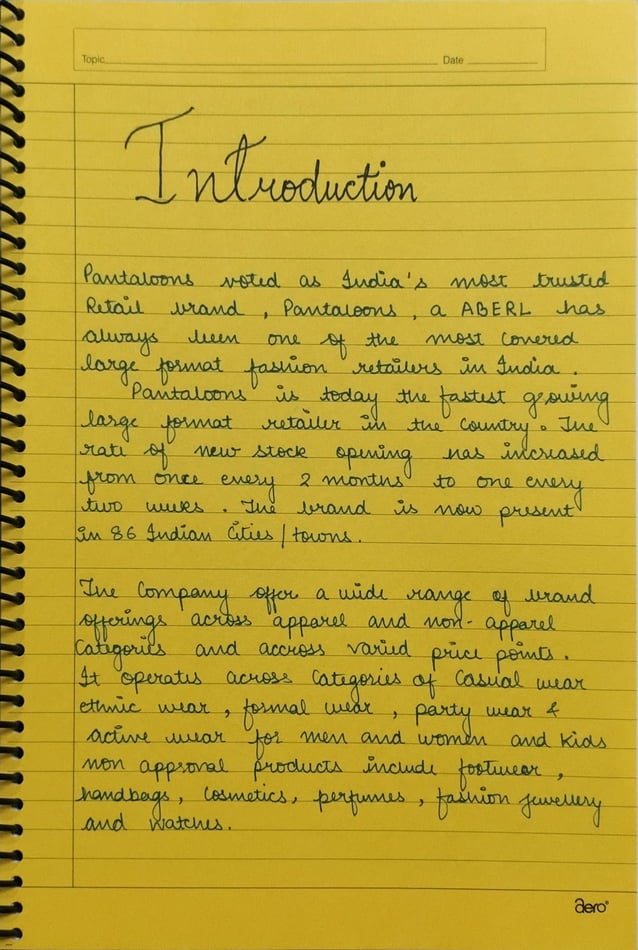 Topic Date
Introduction
Pantaloons voted as India's most trusted
Retail brand , Pantaloons , a ABERL has
always been one of the most Covered
large format fashion retailers in India .
Pantaloons is today the fastest growing
large format retailer in the Country. The
rate of new stock opening has increased
from once every 2 months to one every
two weeks . The brand is now present
in 86 Indian Cities / towns.
The Company offer a wide range of brand
offerings across apparel and non- apparel
Categories and accross varied price points .
It operates across Categories of Casual wear
ethnic wear , formal wear , party wear &
active wear for men and women and kids
non approval products include footwear ,
handbags , Cosmetics, perfumes , fashion jewellery
and watches.
aero